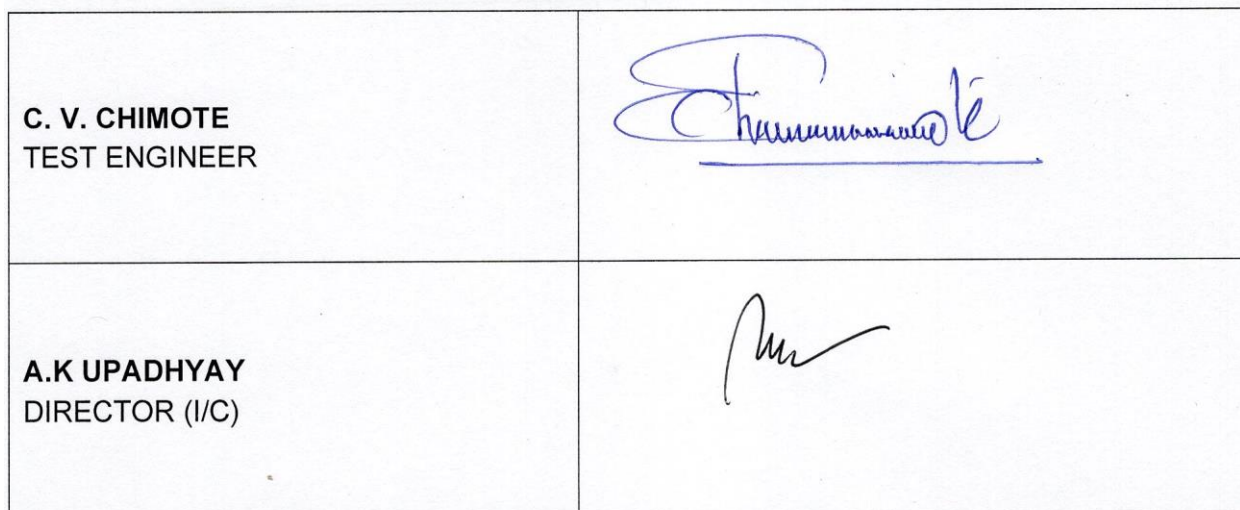 C. V. CHIMOTE
TEST ENGINEER
A.K UPADHYAY
DIRECTOR (I/C)